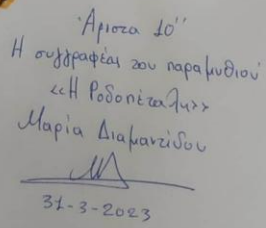 Άριστα 10"
Η συγγραφέας του παραμυθιού
«Η Ροδοπέταλη»
Μαρία Διαμαντίδου
31-3-2023